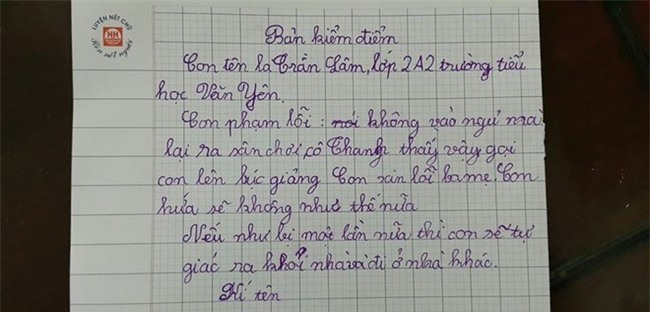 LUYỆN NÉT CHỮ
HH
Rèn nết người
Bản kiểm điểm
Con tên la Trần Lâm, lớp 2A2 trường tiểu
học Văn Yên.
Con phạm lỗi : nói không vào ngủ mà
lại ra sân chơi, cô Thanh thấy vậy gọi
con lên bục giảng Con xin lỗi ba mẹ. Con
hứa sẽ không như thế nữa
Nếu như bị một lần nữa thì con sẽ tự
giác ra khỏi nhà và đi ở nhà khác.
Kí tên